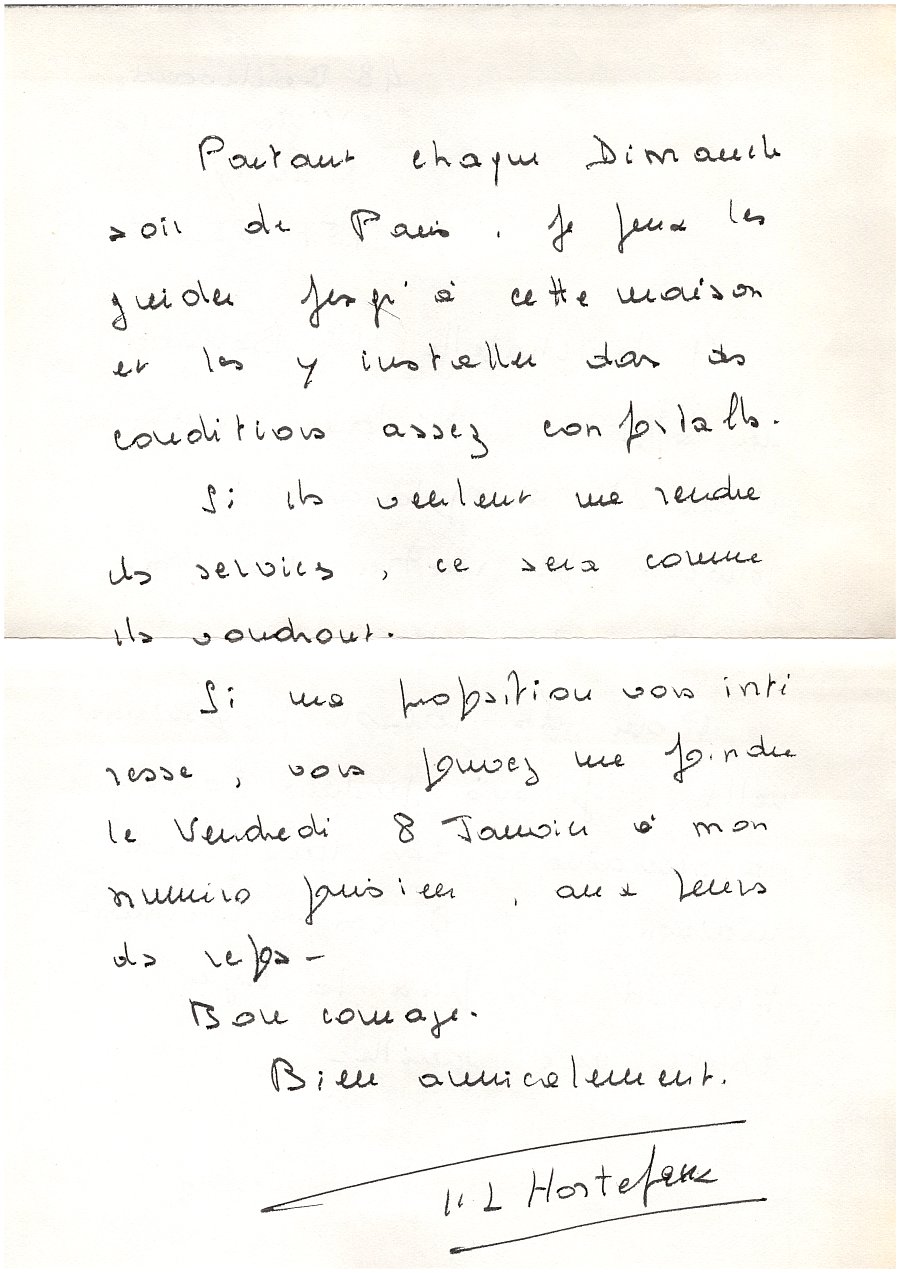 Partant chaque Dimanche
soir de Paris, je peux les
guider jusqu'à cette maison
et les y installer dans des
conditions assez confortables.
Si ils veulent me rendre
des services, ce sera comme
ils voudront.
Si ma proposition vous inté
resse, vous pouvez me joindre
le Vendredi 8 Janvier à mon
numéro parisien, aux heures
de repas -
Bon courage.
Bien amicalement.